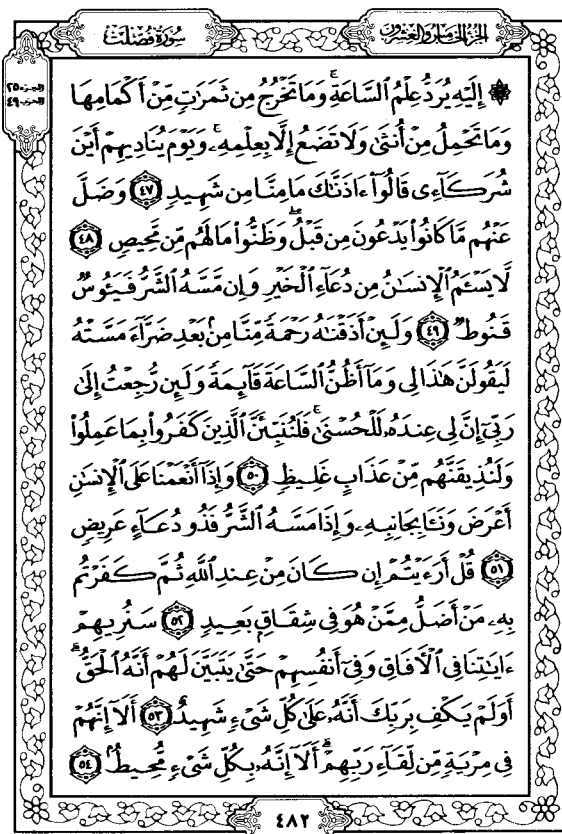 الجزء الخامس والعشرون
سورة فصلت
الجزء ٢٥
الحزب ٤٩
۞ إِلَيْهِ يُرَدُّ عِلْمُ ٱلسَّاعَةِ ۚ وَمَا تَخْرُجُ مِن ثَمَرَٰتٍ مِّنْ أَكْمَامِهَا
وَمَا تَحْمِلُ مِنْ أُنثَىٰ وَلَا تَضَعُ إِلَّا بِعِلْمِهِۦ ۚ وَيَوْمَ يُنَادِيهِمْ أَيْنَ
شُرَكَآءِى قَالُوٓا۟ ءَاذَنَّٰكَ مَا مِنَّا مِن شَهِيدٍ ٤٧ وَضَلَّ
عَنْهُم مَّا كَانُوا۟ يَدْعُونَ مِن قَبْلُ ۖ وَظَنُّوا۟ مَا لَهُم مِّن مَّحِيصٍ ٤٨
لَّا يَسْـَٔمُ ٱلْإِنسَٰنُ مِن دُعَآءِ ٱلْخَيْرِ وَإِن مَّسَّهُ ٱلشَّرُّ فَيَـُٔوسٌ
قَنُوطٌ ٤٩ وَلَئِنْ أَذَقْنَٰهُ رَحْمَةً مِّنَّا مِنۢ بَعْدِ ضَرَّآءَ مَسَّتْهُ
لَيَقُولَنَّ هَٰذَا لِى وَمَآ أَظُنُّ ٱلسَّاعَةَ قَآئِمَةً وَلَئِن رُّجِعْتُ إِلَىٰ
رَبِّىٓ إِنَّ لِى عِندَهُۥ لَلْحُسْنَىٰ ۚ فَلَنُنَبِّئَنَّ ٱلَّذِينَ كَفَرُوا۟ بِمَا عَمِلُوا۟
وَلَنُذِيقَنَّهُم مِّنْ عَذَابٍ غَلِيظٍ ٥٠ وَإِذَآ أَنْعَمْنَا عَلَى ٱلْإِنسَٰنِ
أَعْرَضَ وَنَـَٔا بِجَانِبِهِۦ وَإِذَا مَسَّهُ ٱلشَّرُّ فَذُو دُعَآءٍ عَرِيضٍ
٥١ قُلْ أَرَءَيْتُمْ إِن كَانَ مِنْ عِندِ ٱللَّهِ ثُمَّ كَفَرْتُم
بِهِۦ مَنْ أَضَلُّ مِمَّنْ هُوَ فِى شِقَاقٍۭ بَعِيدٍ ٥٢ سَنُرِيهِمْ
ءَايَٰتِنَا فِى ٱلْـَٔافَاقِ وَفِىٓ أَنفُسِهِمْ حَتَّىٰ يَتَبَيَّنَ لَهُمْ أَنَّهُ ٱلْحَقُّ ۗ
أَوَلَمْ يَكْفِ بِرَبِّكَ أَنَّهُۥ عَلَىٰ كُلِّ شَىْءٍ شَهِيدٌ ٥٣ أَلَآ إِنَّهُمْ
فِى مِرْيَةٍ مِّن لِّقَآءِ رَبِّهِمْ ۗ أَلَآ إِنَّهُۥ بِكُلِّ شَىْءٍ مُّحِيطٌۢ ٥٤
٤٨٢